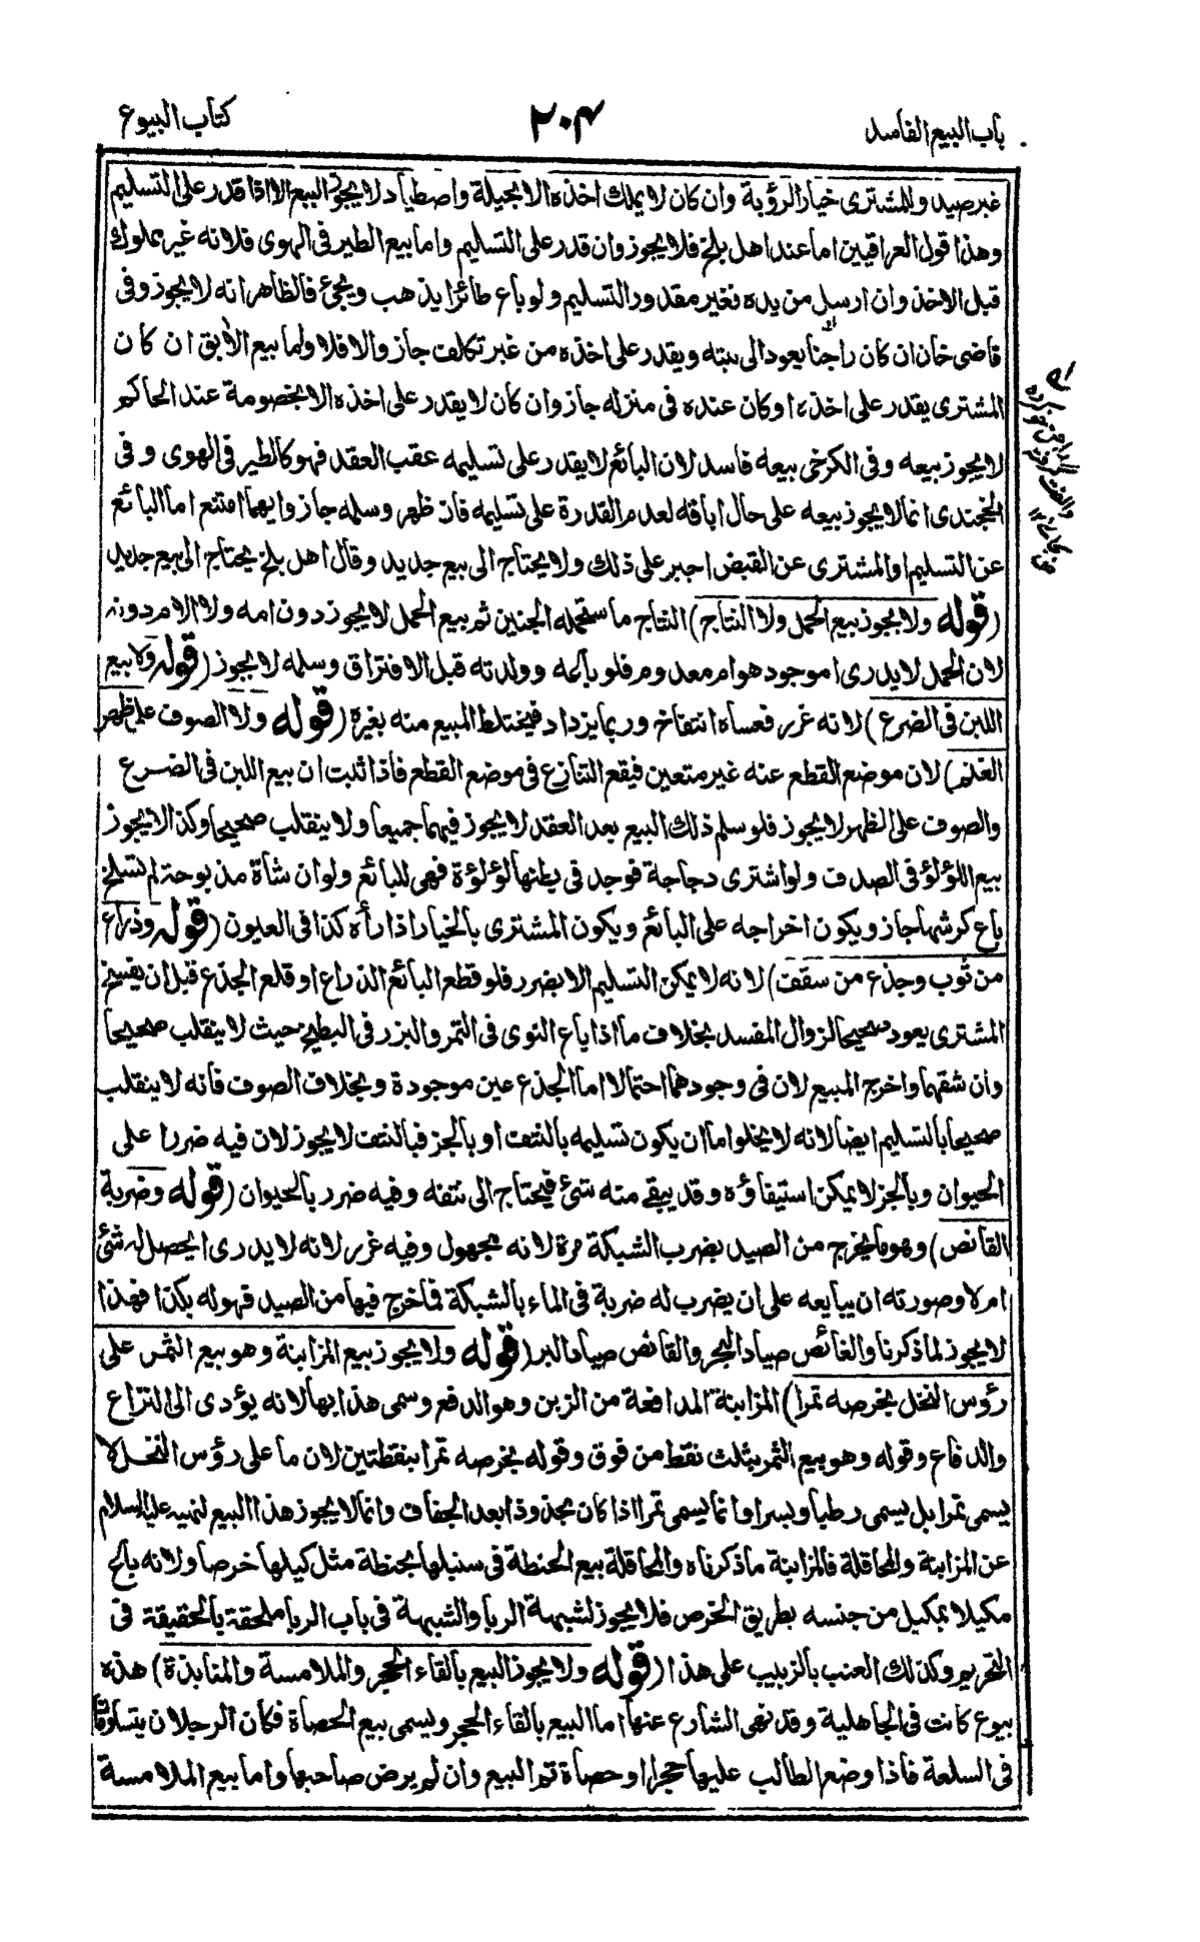 باب البيع الفاسد
٢٠٤
كتاب البيوع
غير صيد وللمشترى خيار الرؤية وان كان لا يملك اخذه الا بحيلة واصطياد لا يجوز البيع الا اذا قدر على التسليم
وهذا قول العراقيين اما عند اهل بلخ فلا يجوز وان قدر على التسليم واما بيع الطير فى الهوى فلانه غير مملوك
قبل الاخذ وان ارسل من يده فغير مقدور التسليم ولو باع طائرا يذهب ويجئ فالظاهر انه لا يجوز وفى
قاضى خان ان كان راجنا يعود الى بيته ويقدر على اخذه من غير تكلف جاز والا فلا واما بيع الآبق ان كان
المشترى يقدر على اخذه او كان عنده فى منزله جاز وان كان لا يقدر على اخذه الا بخصومة عند الحاكم
لا يجوز بيعه وفى الكرخى بيعه فاسد لان البائع لا يقدر على تسليمه عقب العقد فهو كالطير فى الهوى وفى
الخجندى انما لا يجوز بيعه على حال اباقه لعدم القدرة على تسليمه فان ظهر وسلمه جاز وايهما امتنع اما البائع
عن التسليم او المشترى عن القبض اجبر على ذلك ولا يحتاج الى بيع جديد وقال اهل بلخ يحتاج الى بيع جديد
(قوله ولا يجوز بيع الحمل ولا النتاج) النتاج ما ستحمله الجنين ثم بيع الحمل لا يجوز دون امه ولا الام دونه
لان الحمل لا يدرى اموجود هو ام معدوم فلو باعه وولدته قبل الافتراق وسلمه لا يجوز (قوله ولا بيع
اللبن فى الضرع) لانه غرر فعساه انتفاخ وربما يزداد فيختلط المبيع منه بغيره (قوله ولا الصوف على ظهر
الغنم) لان موضع القطع عنه غير متعين فيقع التنازع فى موضع القطع فاذا ثبت ان بيع اللبن فى الضرع
والصوف على الظهر لا يجوز فلو سلم ذلك البيع بعد العقد لا يجوز فيهما جميعا ولا ينقلب صحيحا وكذا لا يجوز
بيع اللؤلؤ فى الصدف ولو اشترى دجاجة فوجد فى بطنها لؤلؤة فهى للبائع ولو ان شاة مذبوحة لم تسلخ
باع كرشها جاز ويكون اخراجه على البائع ويكون المشترى بالخيار اذا رأه كذا فى العيون (قوله وذراع
من ثوب وجذع من سقف) لانه لا يمكن التسليم الا بضرر فلو قطع البائع الذراع او قلع الجذع قبل ان يفسخ
المشترى يعود صحيحا لزوال المفسد بخلاف ما اذا باع النوى فى التمر والبزر فى البطيخ حيث لا ينقلب صحيحا
وان شقهما واخرج المبيع لان فى وجودهما احتمالا اما الجذع عين موجودة وبخلاف الصوف فانه لا ينقلب
صحيحا بالتسليم ايضا لانه لا يخلوا اما ان يكون تسليمه بالنتف او بالجز فبالنتف لا يجوز لان فيه ضررا على
الحيوان وبالجز لا يمكن استيفاؤه وقد يبقى منه شئ فيحتاج الى نتفه وفيه ضرر بالحيوان (قوله وضربة
القانص) وهو ما يخرج من الصيد بضرب الشبكة مرة لانه مجهول وفيه غرر لانه لا يدرى ايحصل له شئ
ام لا وصورته ان يبايعه على ان يضرب له ضربة فى الماء بالشبكة فما خرج فيها من الصيد فهو له بكذا فهذا
لا يجوز لما ذكرنا والغائص صياد البحر والقانص صياد البر (قوله ولا يجوز بيع المزابنة وهو بيع الثمر على
رؤس النخل بخرصه تمرا) المزابنة المدافعة من الزبن وهو الدفع وسمى هذا بها لانه يؤدى الى النزاع
والدفاع وقوله وهو بيع الثمر بثلث نقط من فوق وقوله بخرصه تمرا بنقطتين لان ما على رؤس النخل لا
يسمى تمرا بل يسمى رطبا وبسرا وانما يسمى تمرا اذا كان مجذوذا بعد الجفاف وانما لا يجوز هذا البيع لنهيه عليه السلام
عن المزابنة والمحاقلة فالمزابنة ما ذكرناه والمحاقلة بيع الحنطة فى سنبلها بحنطة مثل كيلها خرصا ولانه باع
مكيلا بمكيل من جنسه بطريق الخرص فلا يجوز لشبهة الربا والشبهة فى باب الربا ملحقة بالحقيقة فى
التحريم وكذلك العنب بالزبيب على هذا (قوله ولا يجوز البيع بالقاء الحجر والملامسة والمنابذة) هذه
بيوع كانت فى الجاهلية وقد نهى الشارع عنها اما البيع بالقاء الحجر ويسمى بيع الحصاة فكان الرجلان يتساومان
فى السلعة فاذا وضع الطالب عليها حجرا او حصاة تم البيع وان لم يرض صاحبها واما بيع الملامسة